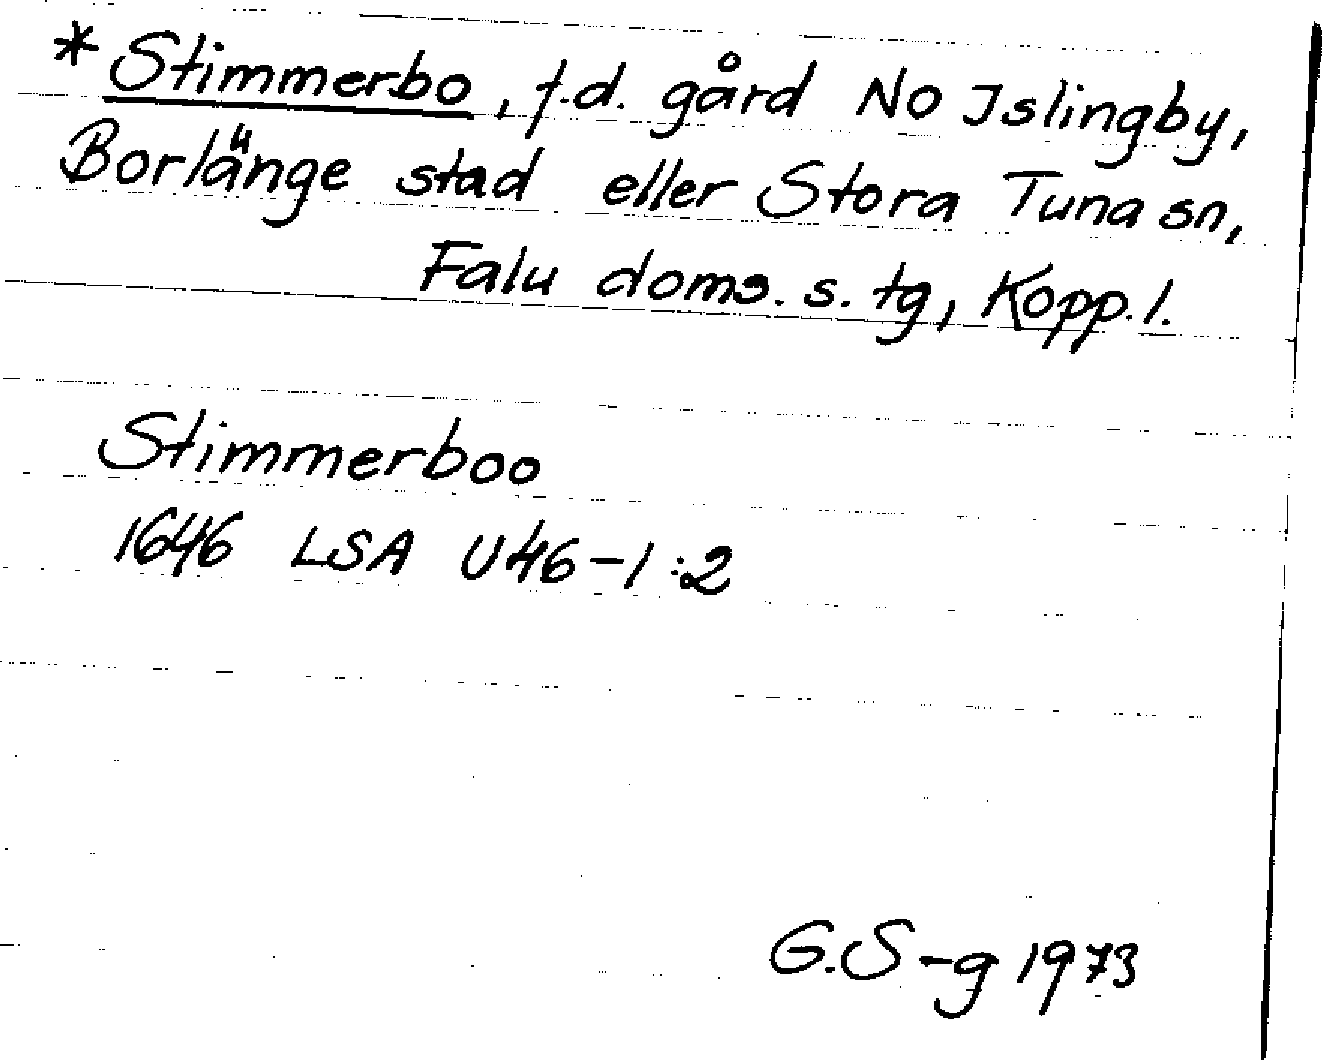 *Stimmerbo, f.d. gård NO Islingby,
Borlänge stad eller Stora Tuna sn,
Falu doms. s. tg, Kopp. l.
Stimmerboo
1646 LSA U46-1:2
G.S-g 1973